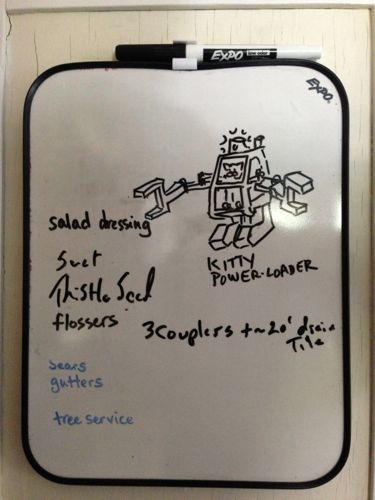 EXPO low odor
EXPO
KITTY
POWER-LOADER
salad dressing
Suet
Thistle Seed
flossers
3 couplers + ~20' drain
Tile
Sears
gutters
tree service